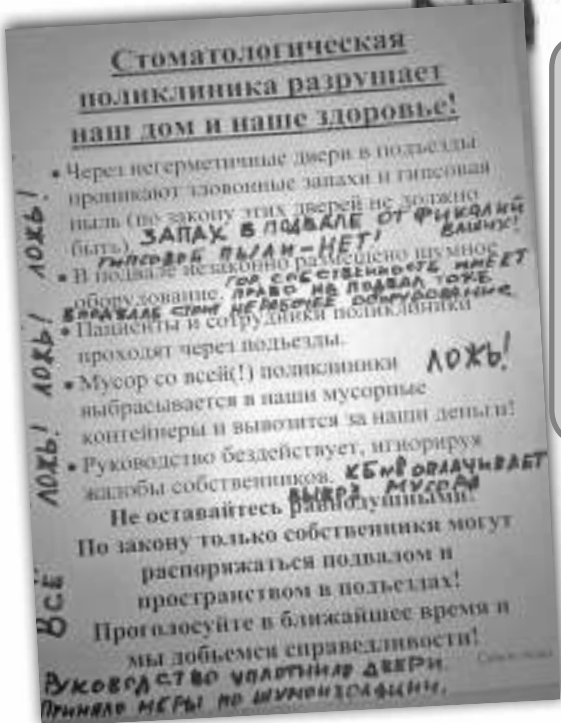 Стоматологическая
поликлиника разрушает
наш дом и наше здоровье!
• Через негерметичные двери в подъезды
проникают зловонные запахи и гипсовая
пыль (по закону этих дверей не должно
быть). ЗАПАХ В ПОДВАЛЕ ОТ ФИКАЛИЙ
ВАШИХ!
ГИПСОВОЙ ПЫЛИ-НЕТ!
• В подвале незаконно размещено шумное
ГОР СОБСТВЕННОСТЬ ИМЕЕТ
оборудование. ПРАВО НА ПОДВАЛ ТОЖЕ
В ПОДВАЛЕ СТОИТ НЕРАБОЧЕЕ ОБОРУДОВАНИЕ
• Пациенты и сотрудники поликлиники
проходят через подъезды.
• Мусор со всей(!) поликлиники ЛОЖЬ!
выбрасывается в наши мусорные
контейнеры и вывозится за наши деньги!
• Руководство бездействует, игнорируя
жалобы собственников. ОПЛАЧИВАЕТ
ВЫВОЗ МУСОРА
Не оставайтесь равнодушными!
По закону только собственники могут
распоряжаться подвалом и
пространством в подъездах!
Проголосуйте в ближайшее время и
мы добьемся справедливости!
РУКОВОДСТВО УПЛОТНИЛО ДВЕРИ.
ПРИНЯЛО МЕРЫ ПО ШУМОИЗОЛЯЦИИ.
ВСЁ ЛОЖЬ! ЛОЖЬ! ЛОЖЬ!